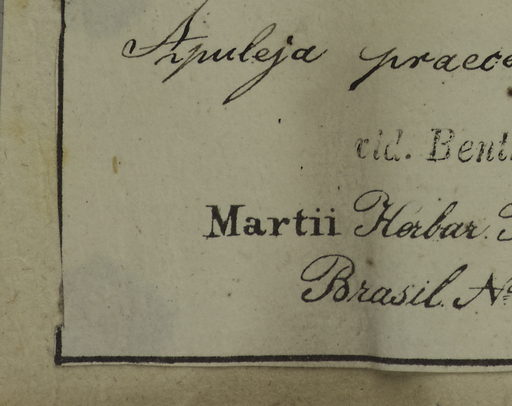 Apuleja praec
vid. Bent
Martii Herbar.
Brasil. No